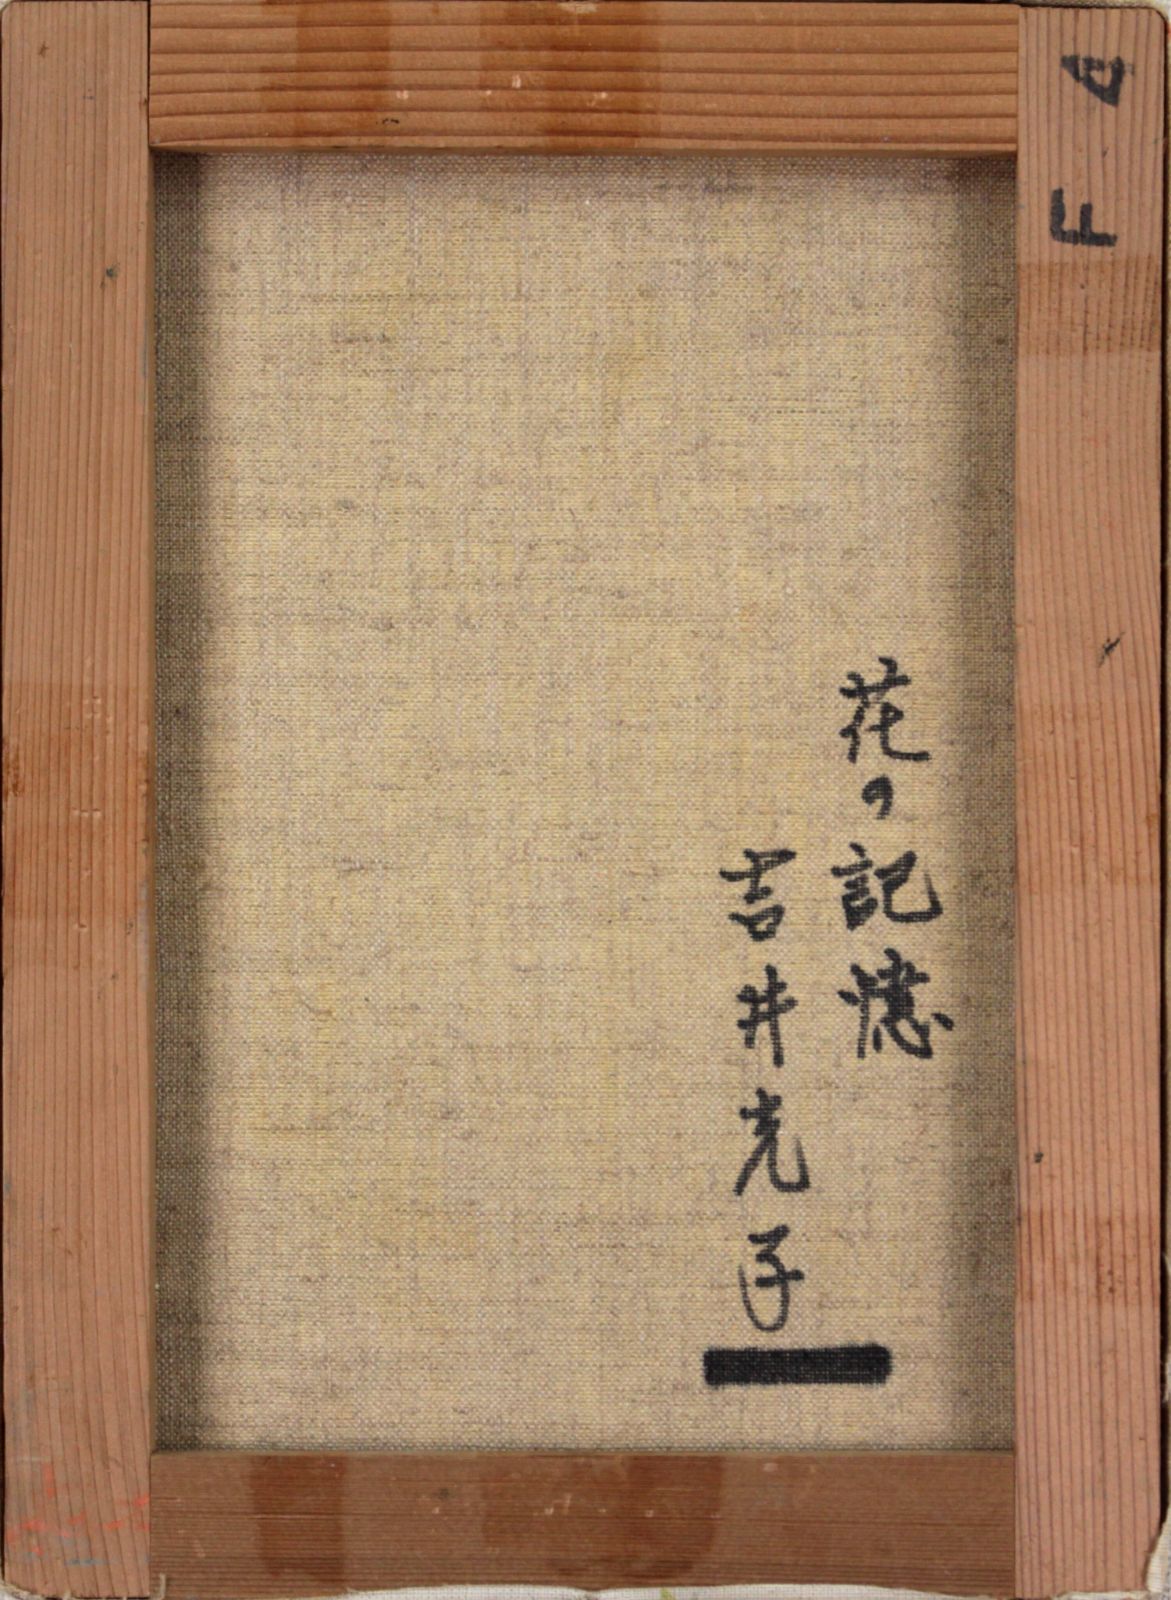 花の記憶
吉井光子
F 4